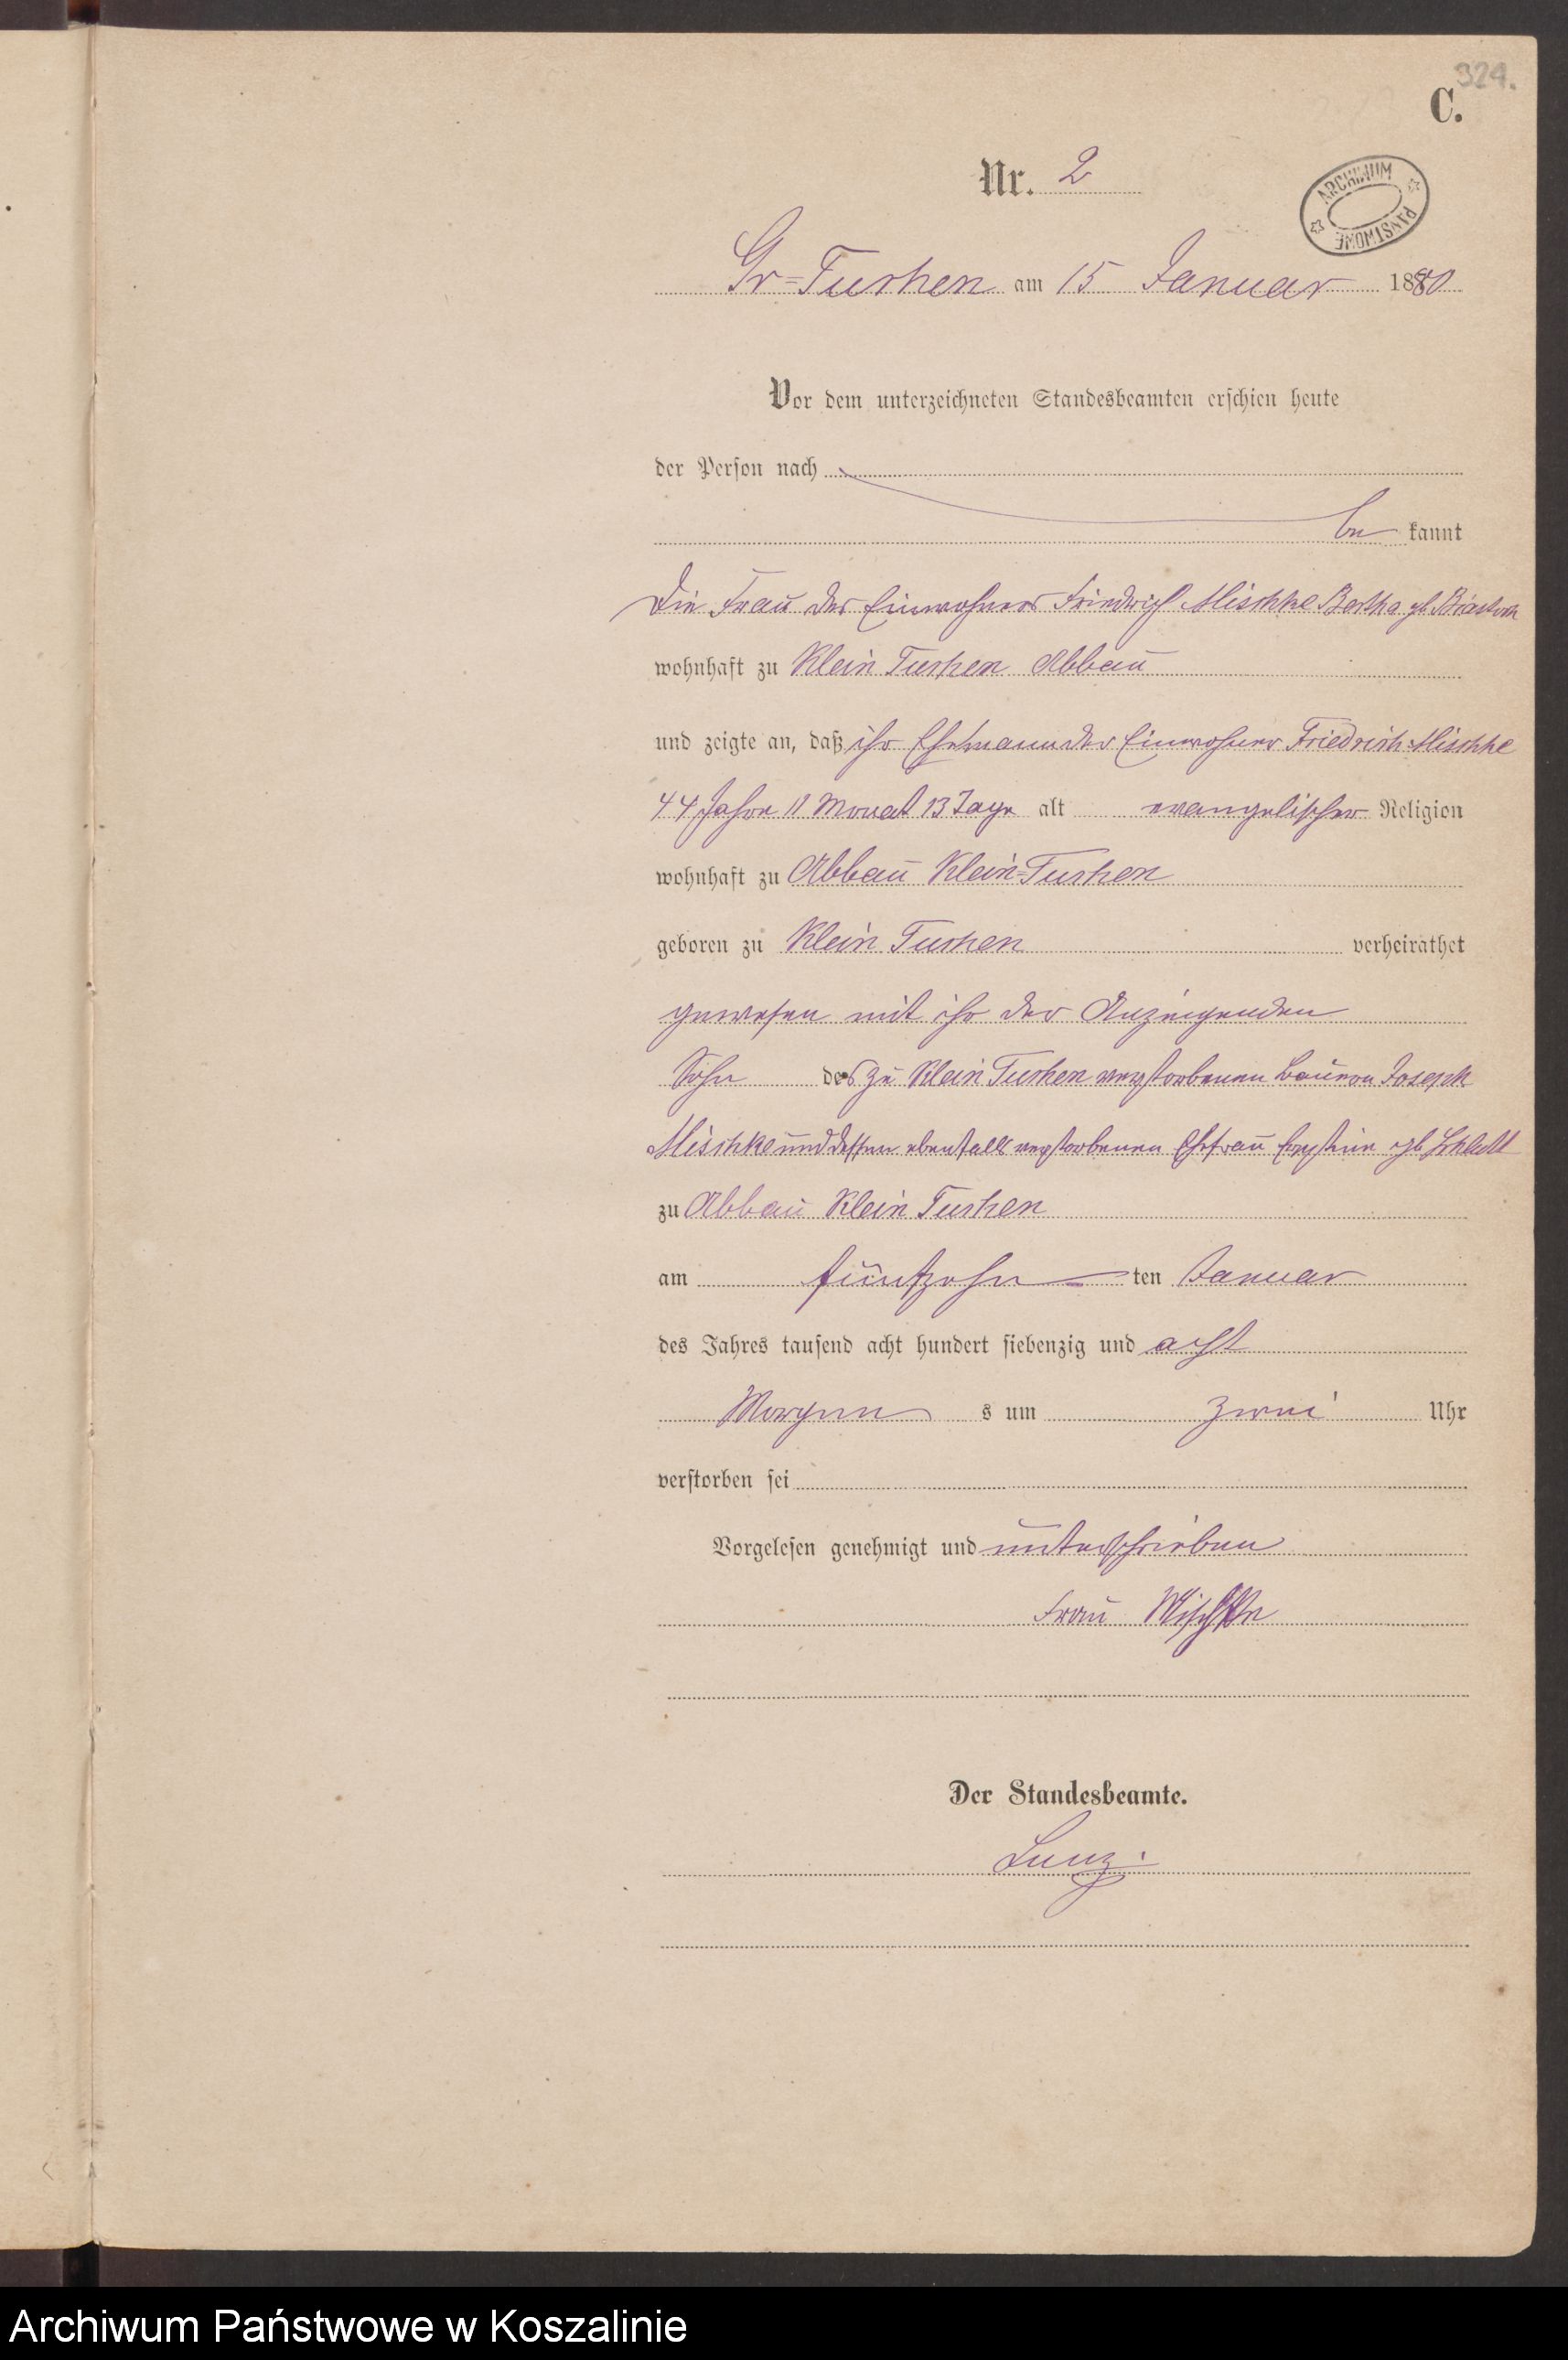 324.
C.
Nr. 2
ARCHIWUM PAŃSTWOWE
Gr=Tuchen am 15 Januar 1880
Vor dem unterzeichneten Standesbeamten erschien heute
der Person nach
be kannt
Die Frau des Einwohners Friedrich Mischke Bertha gb.
wohnhaft zu Klein Tuchen Abbau
und zeigte an, daß ihr Ehemann der Einwohner Friedrich Mischke
44 Jahre 11 Monat 13 Tage alt evangelischer Religion
wohnhaft zu Abbau Klein=Tuchen
geboren zu Klein Tuchen verheirathet
gewesen mit ihr der Anzeigenden
Sohn des zu Klein Tuchen verstorbenen Bauern Joseph
Mischke und dessen ebenfalls verstorbenen Ehefrau gb
zu Abbau Klein Tuchen
am fünfzehn ten Januar
des Jahres tausend acht hundert siebenzig und acht
Morgen s um zwei Uhr
verstorben sei
Vorgelesen genehmigt und unterschrieben
Frau Mischke
Der Standesbeamte.
Lunz.
Archiwum Państwowe w Koszalinie